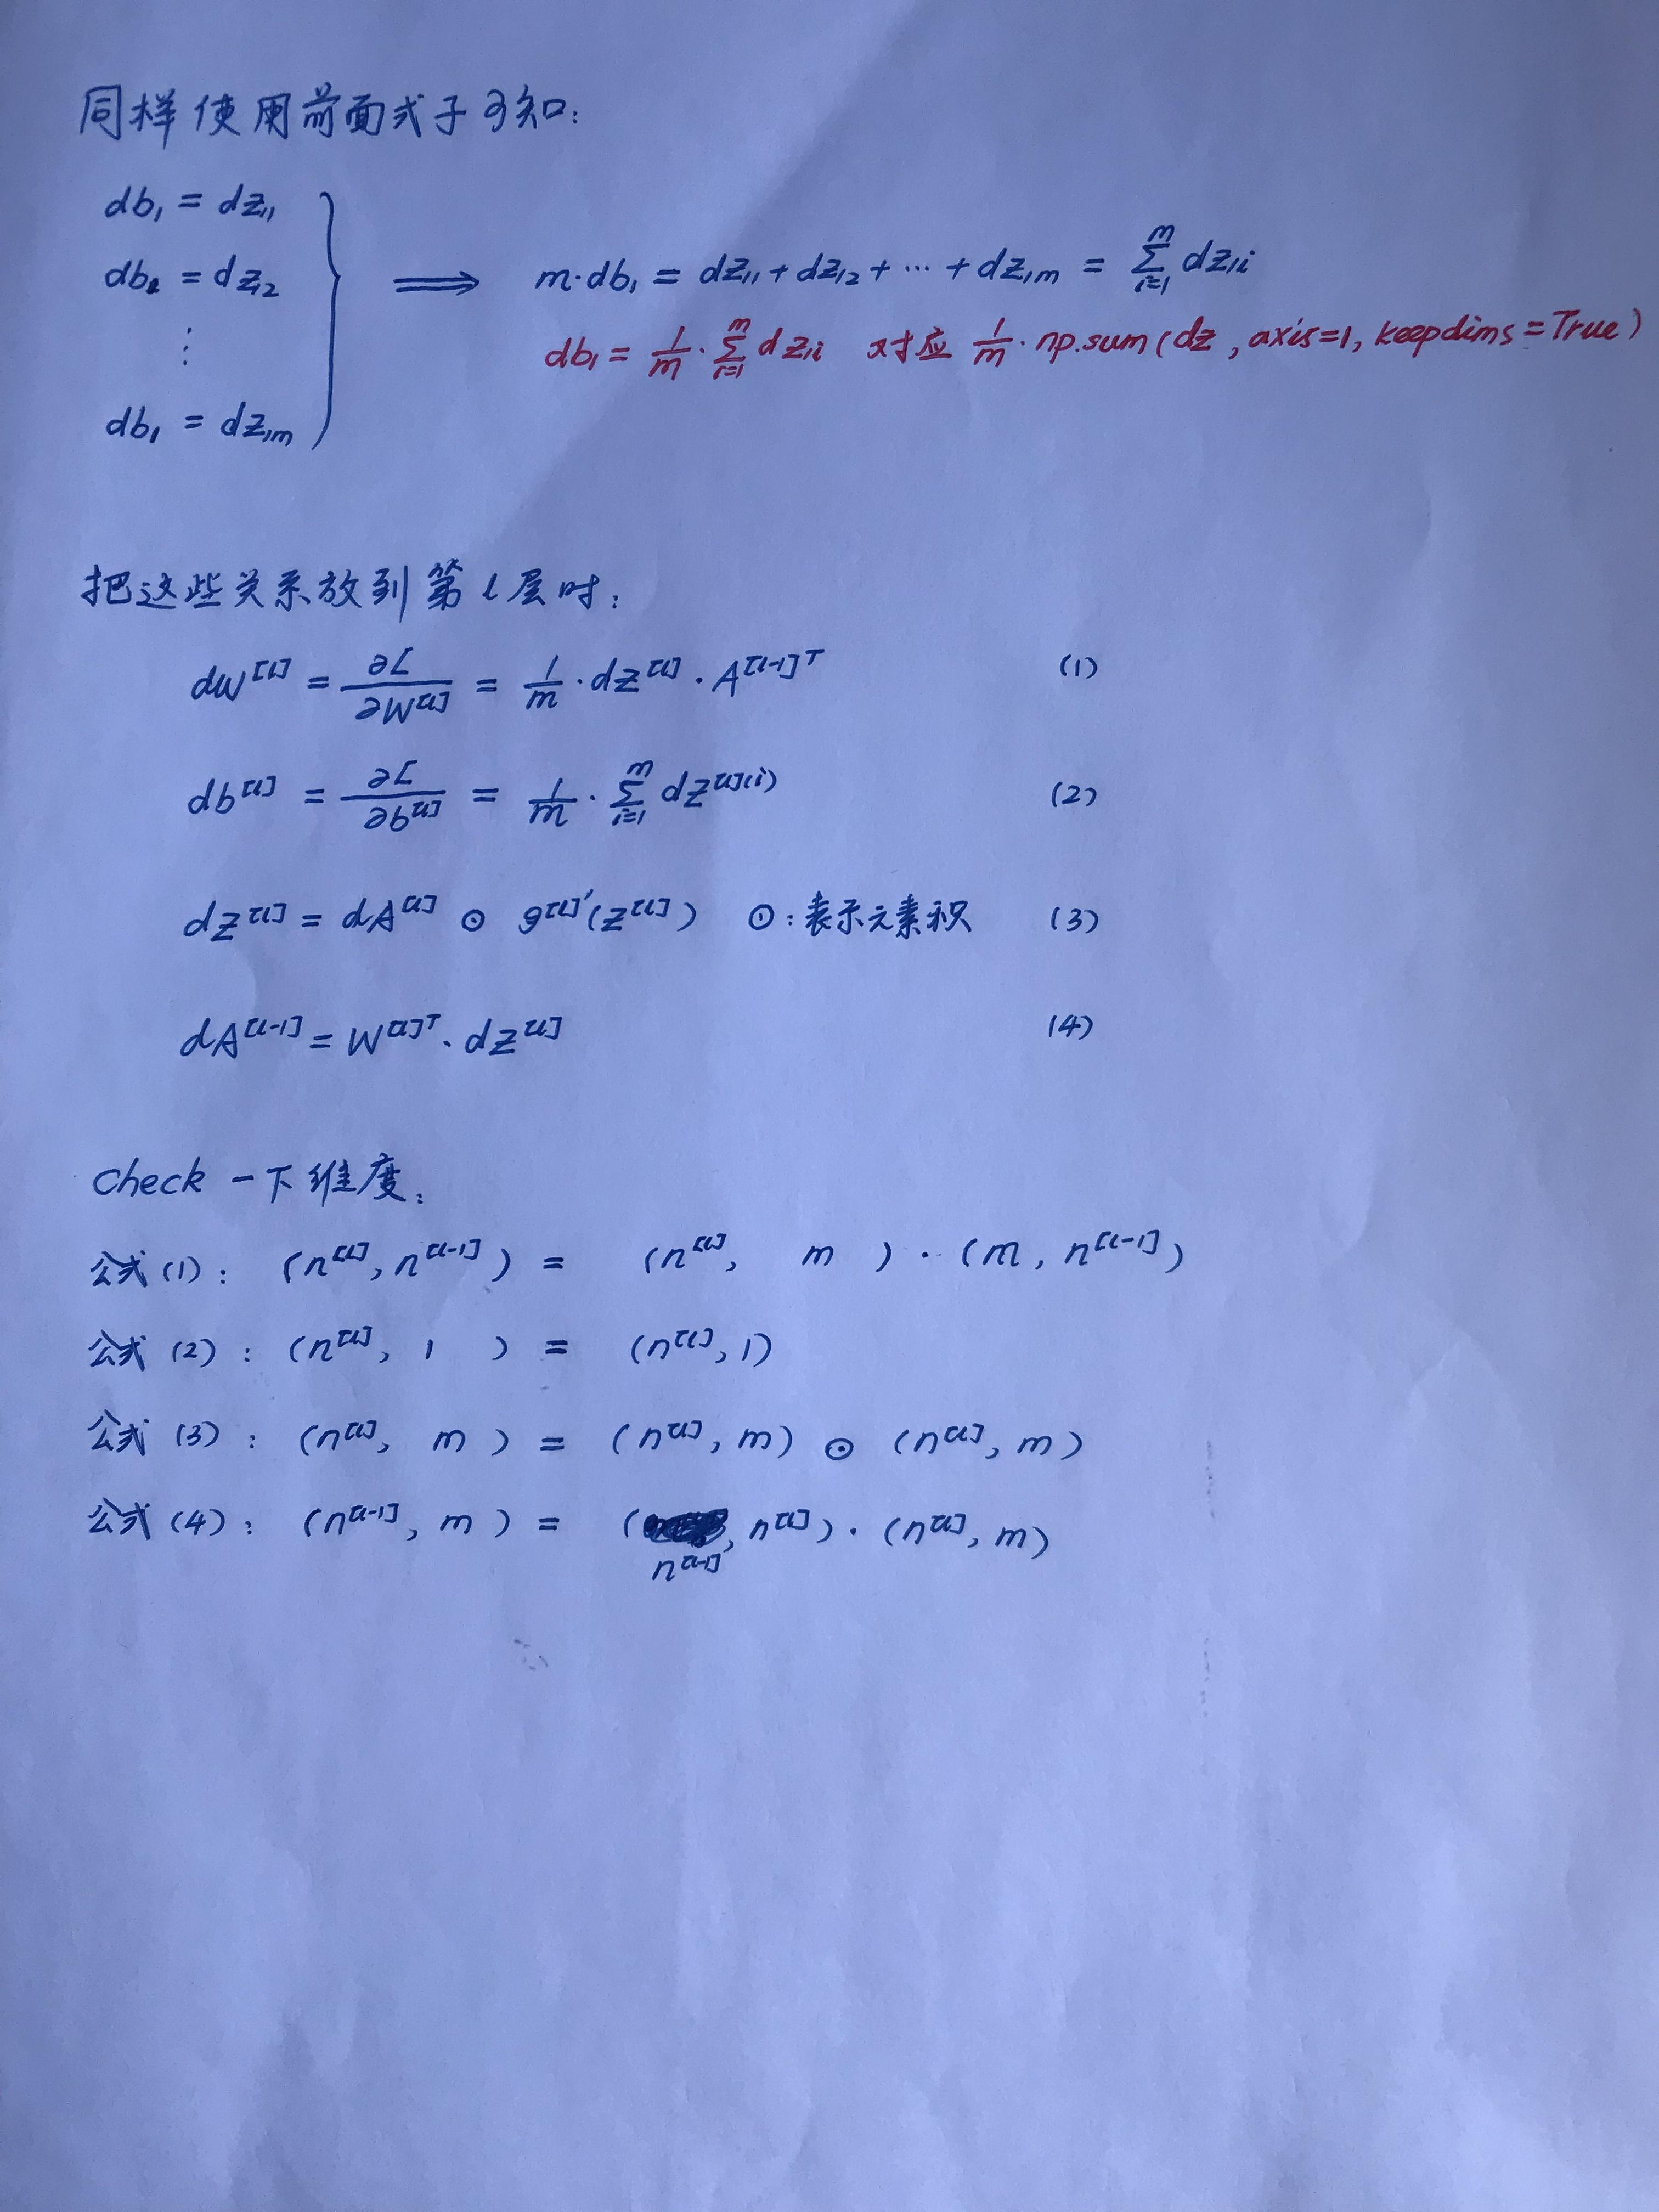 同样使用前面式子可知:
db₁ = dz₁₁
db₁ = dz₁₂
⋮
db₁ = dz₁ₘ
⟹ m·db₁ = dz₁₁ + dz₁₂ + ⋯ + dz₁ₘ = \sum_{i=1}^{m} dz_{1i}
db₁ = \frac{1}{m} · \sum_{i=1}^{m} dz_{1i} 对应 \frac{1}{m} · np.sum(dz, axis=1, keepdims=True)
把这些关系放到第 l 层时:
dW^{[l]} = \frac{∂L}{∂W^{[l]}} = \frac{1}{m} · dZ^{[l]} · A^{[l-1]T} (1)
db^{[l]} = \frac{∂L}{∂b^{[l]}} = \frac{1}{m} · \sum_{i=1}^{m} dZ^{[l](i)} (2)
dZ^{[l]} = dA^{[l]} ⊙ g^{[l]'}(Z^{[l]}) ⊙:表示元素积 (3)
dA^{[l-1]} = W^{[l]T} · dZ^{[l]} (4)
Check 一下维度:
公式(1): (n^{[l]}, n^{[l-1]}) = (n^{[l]}, m) · (m, n^{[l-1]})
公式(2): (n^{[l]}, 1) = (n^{[l]}, 1)
公式(3): (n^{[l]}, m) = (n^{[l]}, m) ⊙ (n^{[l]}, m)
公式(4): (n^{[l-1]}, m) = (n^{[l-1]}, n^{[l]}) · (n^{[l]}, m)